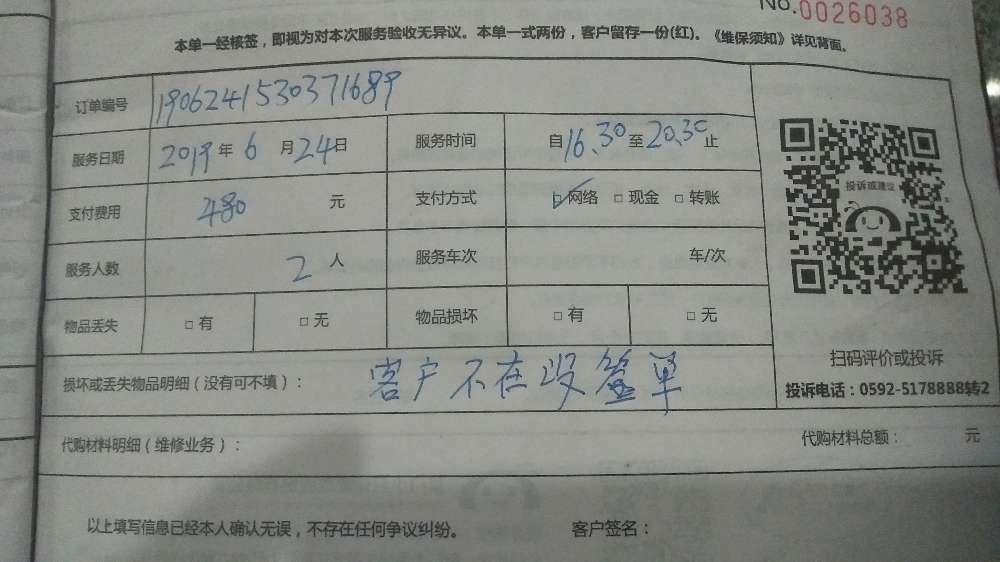 No.0026038
本单一经核签，即视为对本次服务验收无异议。本单一式两份，客户留存一份(红)。《维保须知》详见背面。
订单编号 1906241530371689
服务日期 2019年6月24日 服务时间 自16.30至20.30止
支付费用 480 元 支付方式 ☑网络 □现金 □转账
投诉或建议
服务人数 2人 服务车次 车/次
物品丢失 □有 □无 物品损坏 □有 □无
扫码评价或投诉
损坏或丢失物品明细（没有可不填）： 客户不在没签单
投诉电话：0592-5178888转2
代购材料明细（维修业务）： 代购材料总额： 元
以上填写信息已经本人确认无误，不存在任何争议纠纷。 客户签名：